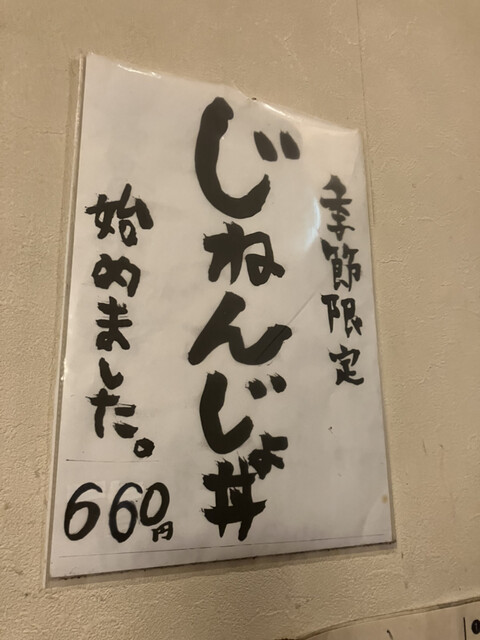 季節限定
じねんじょ丼
始めました。
660円